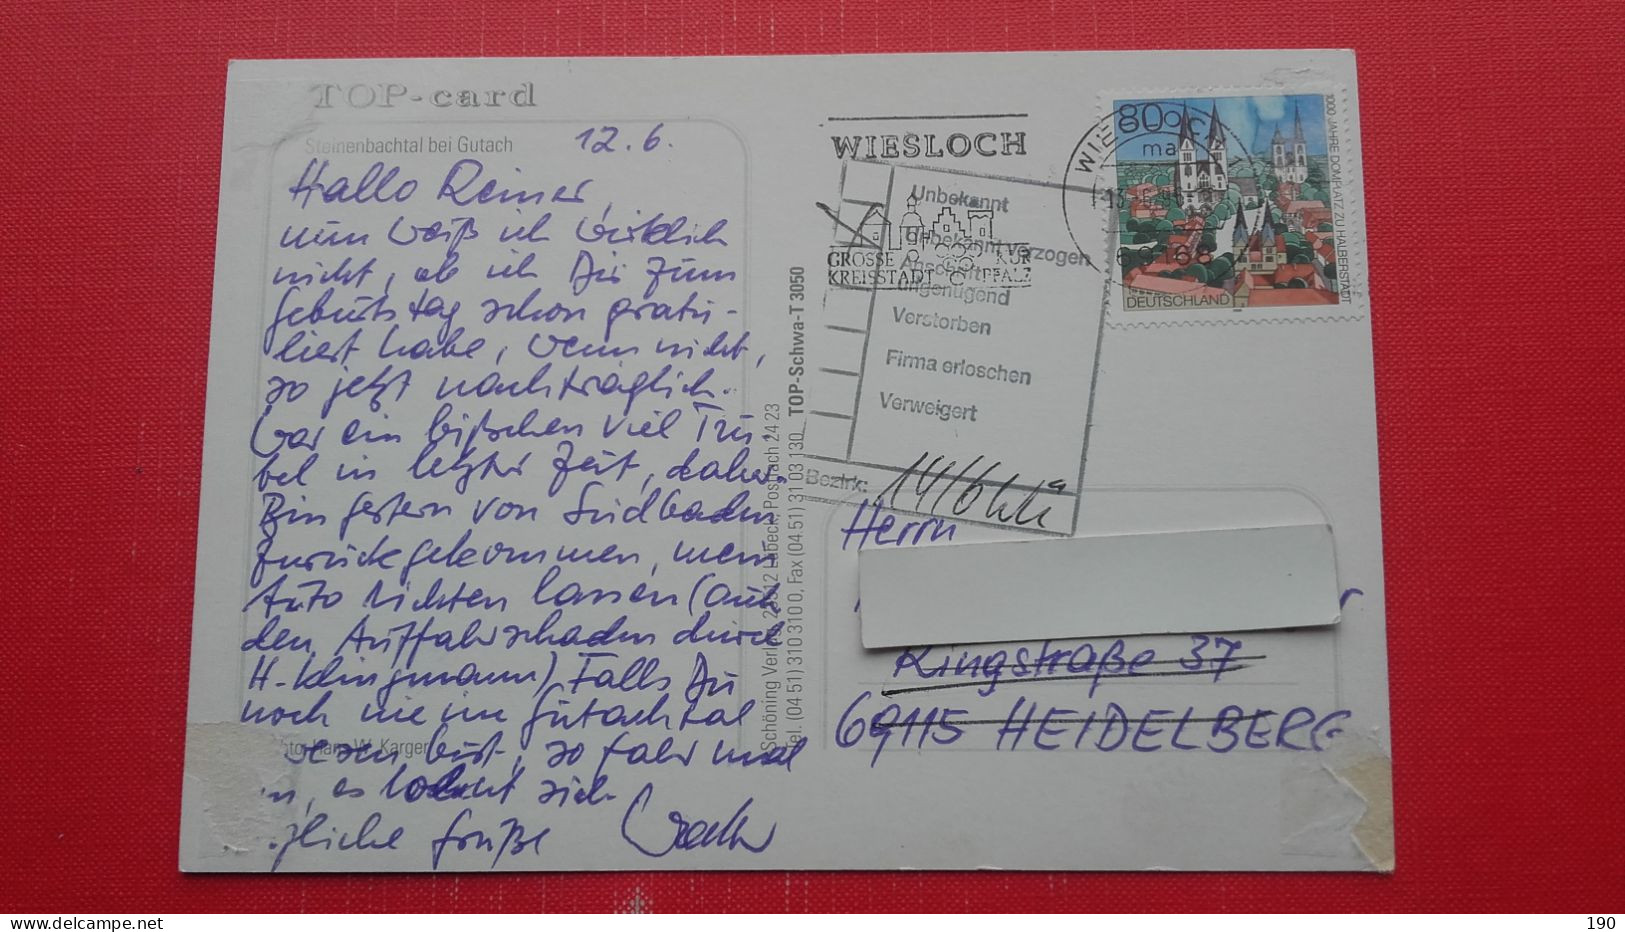 TOP-card
Steinenbachtal bei Gutach
12.6.
Hallo Reiner,
nun weiß ich wirklich
nicht, ob ich Dir zum
Geburtstag schon gratu-
liert habe, wenn nicht,
so jetzt nachträglich.
War ein bißchen viel Tru-
bel in letzter Zeit, daher.
Bin gestern von Südbaden
zurückgekommen, mein
Auto richten lassen (auch
den Auffahrschaden durch
H. Klingmann) Falls Du
noch nie im Gutachtal
bist, so fahr mal
es lohnt sich
Grüße
Foto: Hans W. Karger
Schöning Verlag, 23512 Lübeck, Postfach 24 23
Tel. (04 51) 310 31 00, Fax (04 51) 31 03 130
TOP-Schwa-T 3050
WIESLOCH
GROSSE KUR
KREISSTADT PFALZ
Unbekannt
Unbekannt verzogen
Anschrift
ungenügend
Verstorben
Firma erloschen
Verweigert
Bezirk:
14/6
80
DEUTSCHLAND
1000 JAHRE DOMPLATZ ZU HALBERSTADT
69168
Herrn
Ringstraße 37
69115 HEIDELBERG
190